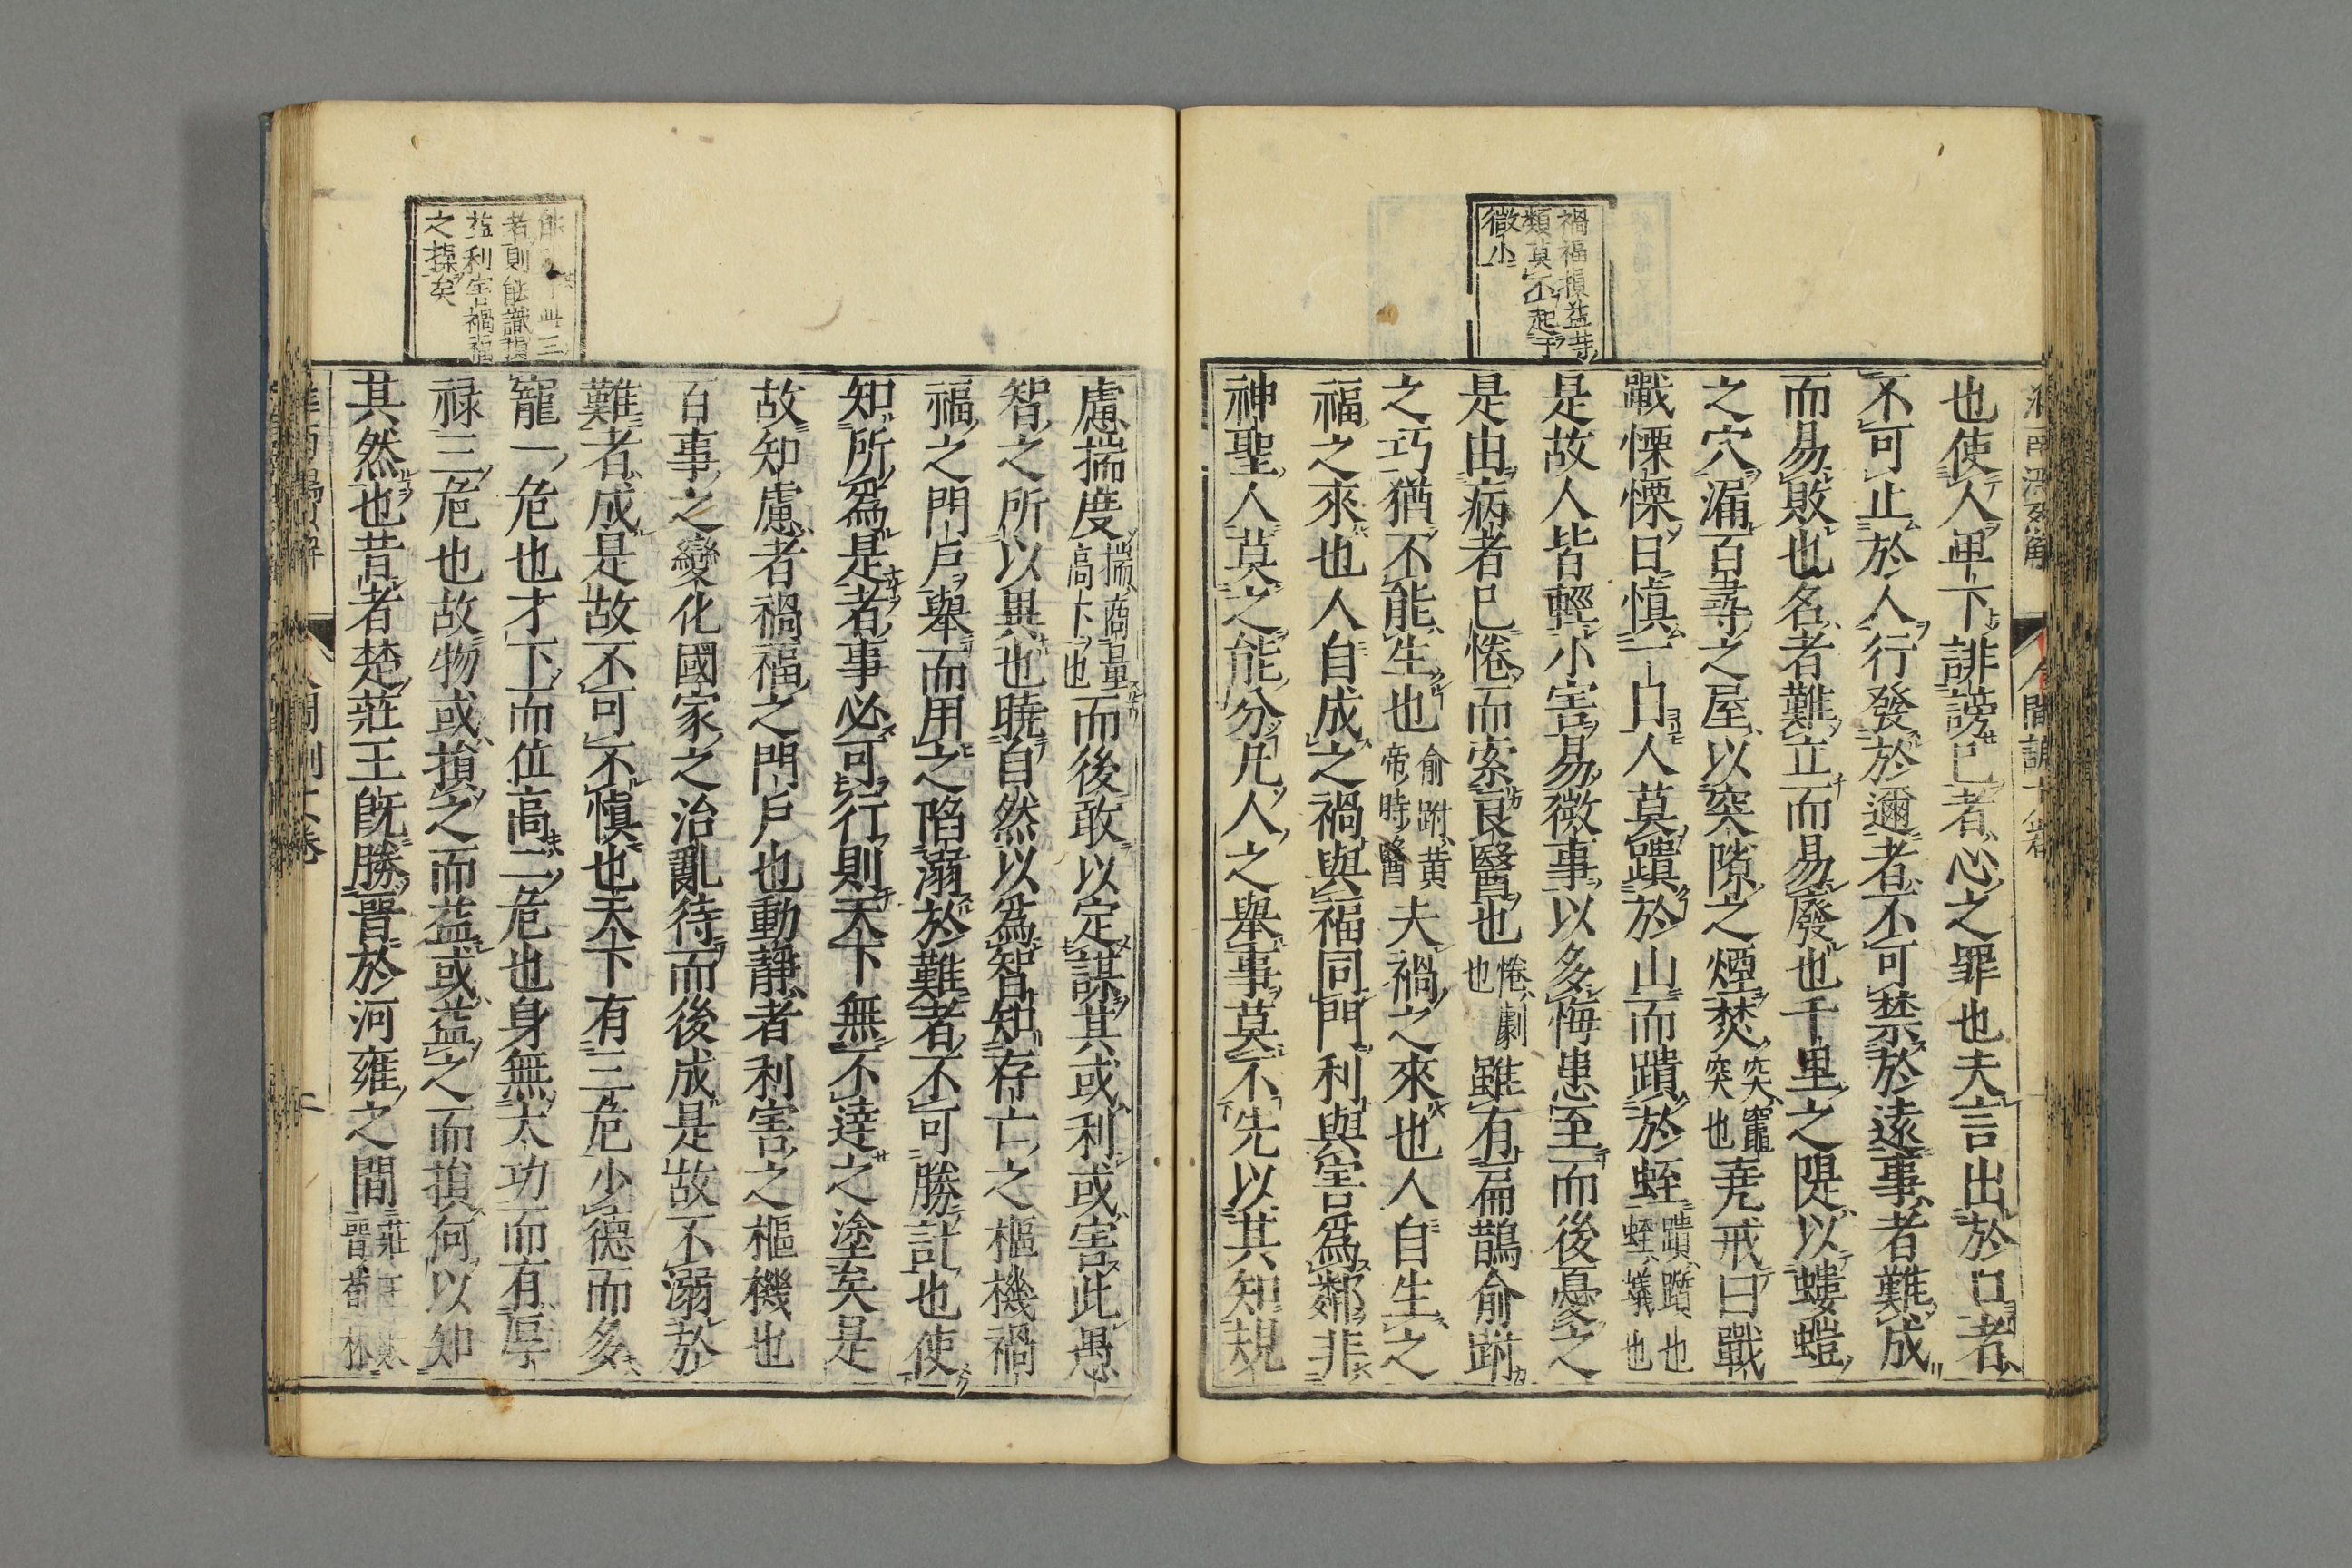 禍福損益等
類莫不起于
微小
也使人卑下誹謗已者心之罪也夫言出於口者
不可止於人行發於邇者不可禁於遠事者難成
而易敗也名者難立而易廢也千里之隄以螻螘
之穴漏百尋之屋以突隙之煙焚突竈突也堯戒曰戰
戰慄慄日慎一日人莫蹪於山而蹪於蛭蹪躓也蛭蟻也
是故人皆輕小害易微事以多悔患至而後憂之
是由病者已惓而索良醫也惓劇也雖有扁鵲俞跗
之巧猶不能生也俞跗黄帝時醫夫禍之來也人自生之
福之來也人自成之禍與福同門利與害爲鄰非
神聖人莫之能分凡人之舉事莫不先以其知規
者則能識損
益利害禍福
之操矣
慮揣度揣商量高下也而後敢以定謀其或利或害此愚
智之所以異也曉自然以爲智知存亡之樞機禍
福之門戶舉而用之陷溺於難者不可勝計也使
知所爲是者事必可行則天下無不達之塗矣是
故知慮者禍福之門戶也動靜者利害之樞機也
百事之變化國家之治亂待而後成是故不溺於
難者成是故不可不慎也天下有三危少德而多
寵一危也才下而位高二危也身無大功而有厚
禄三危也故物或損之而益或益之而損何以知
其然也昔者楚莊王既勝晉於河雍之間